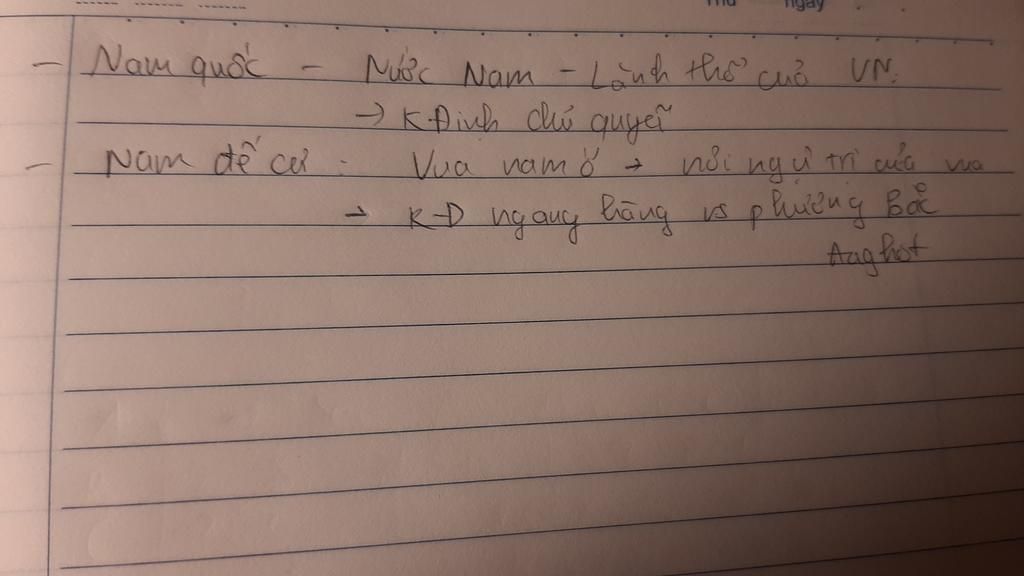 Thứ ngày
- Nam quốc - Nước Nam - Lãnh thổ củả VN.
→ KĐịnh chủ quyền
- Nam đế cư : Vua nam ở → nơi ngự trị của vua
→ K-Đ ngang hàng vs phương Bắc